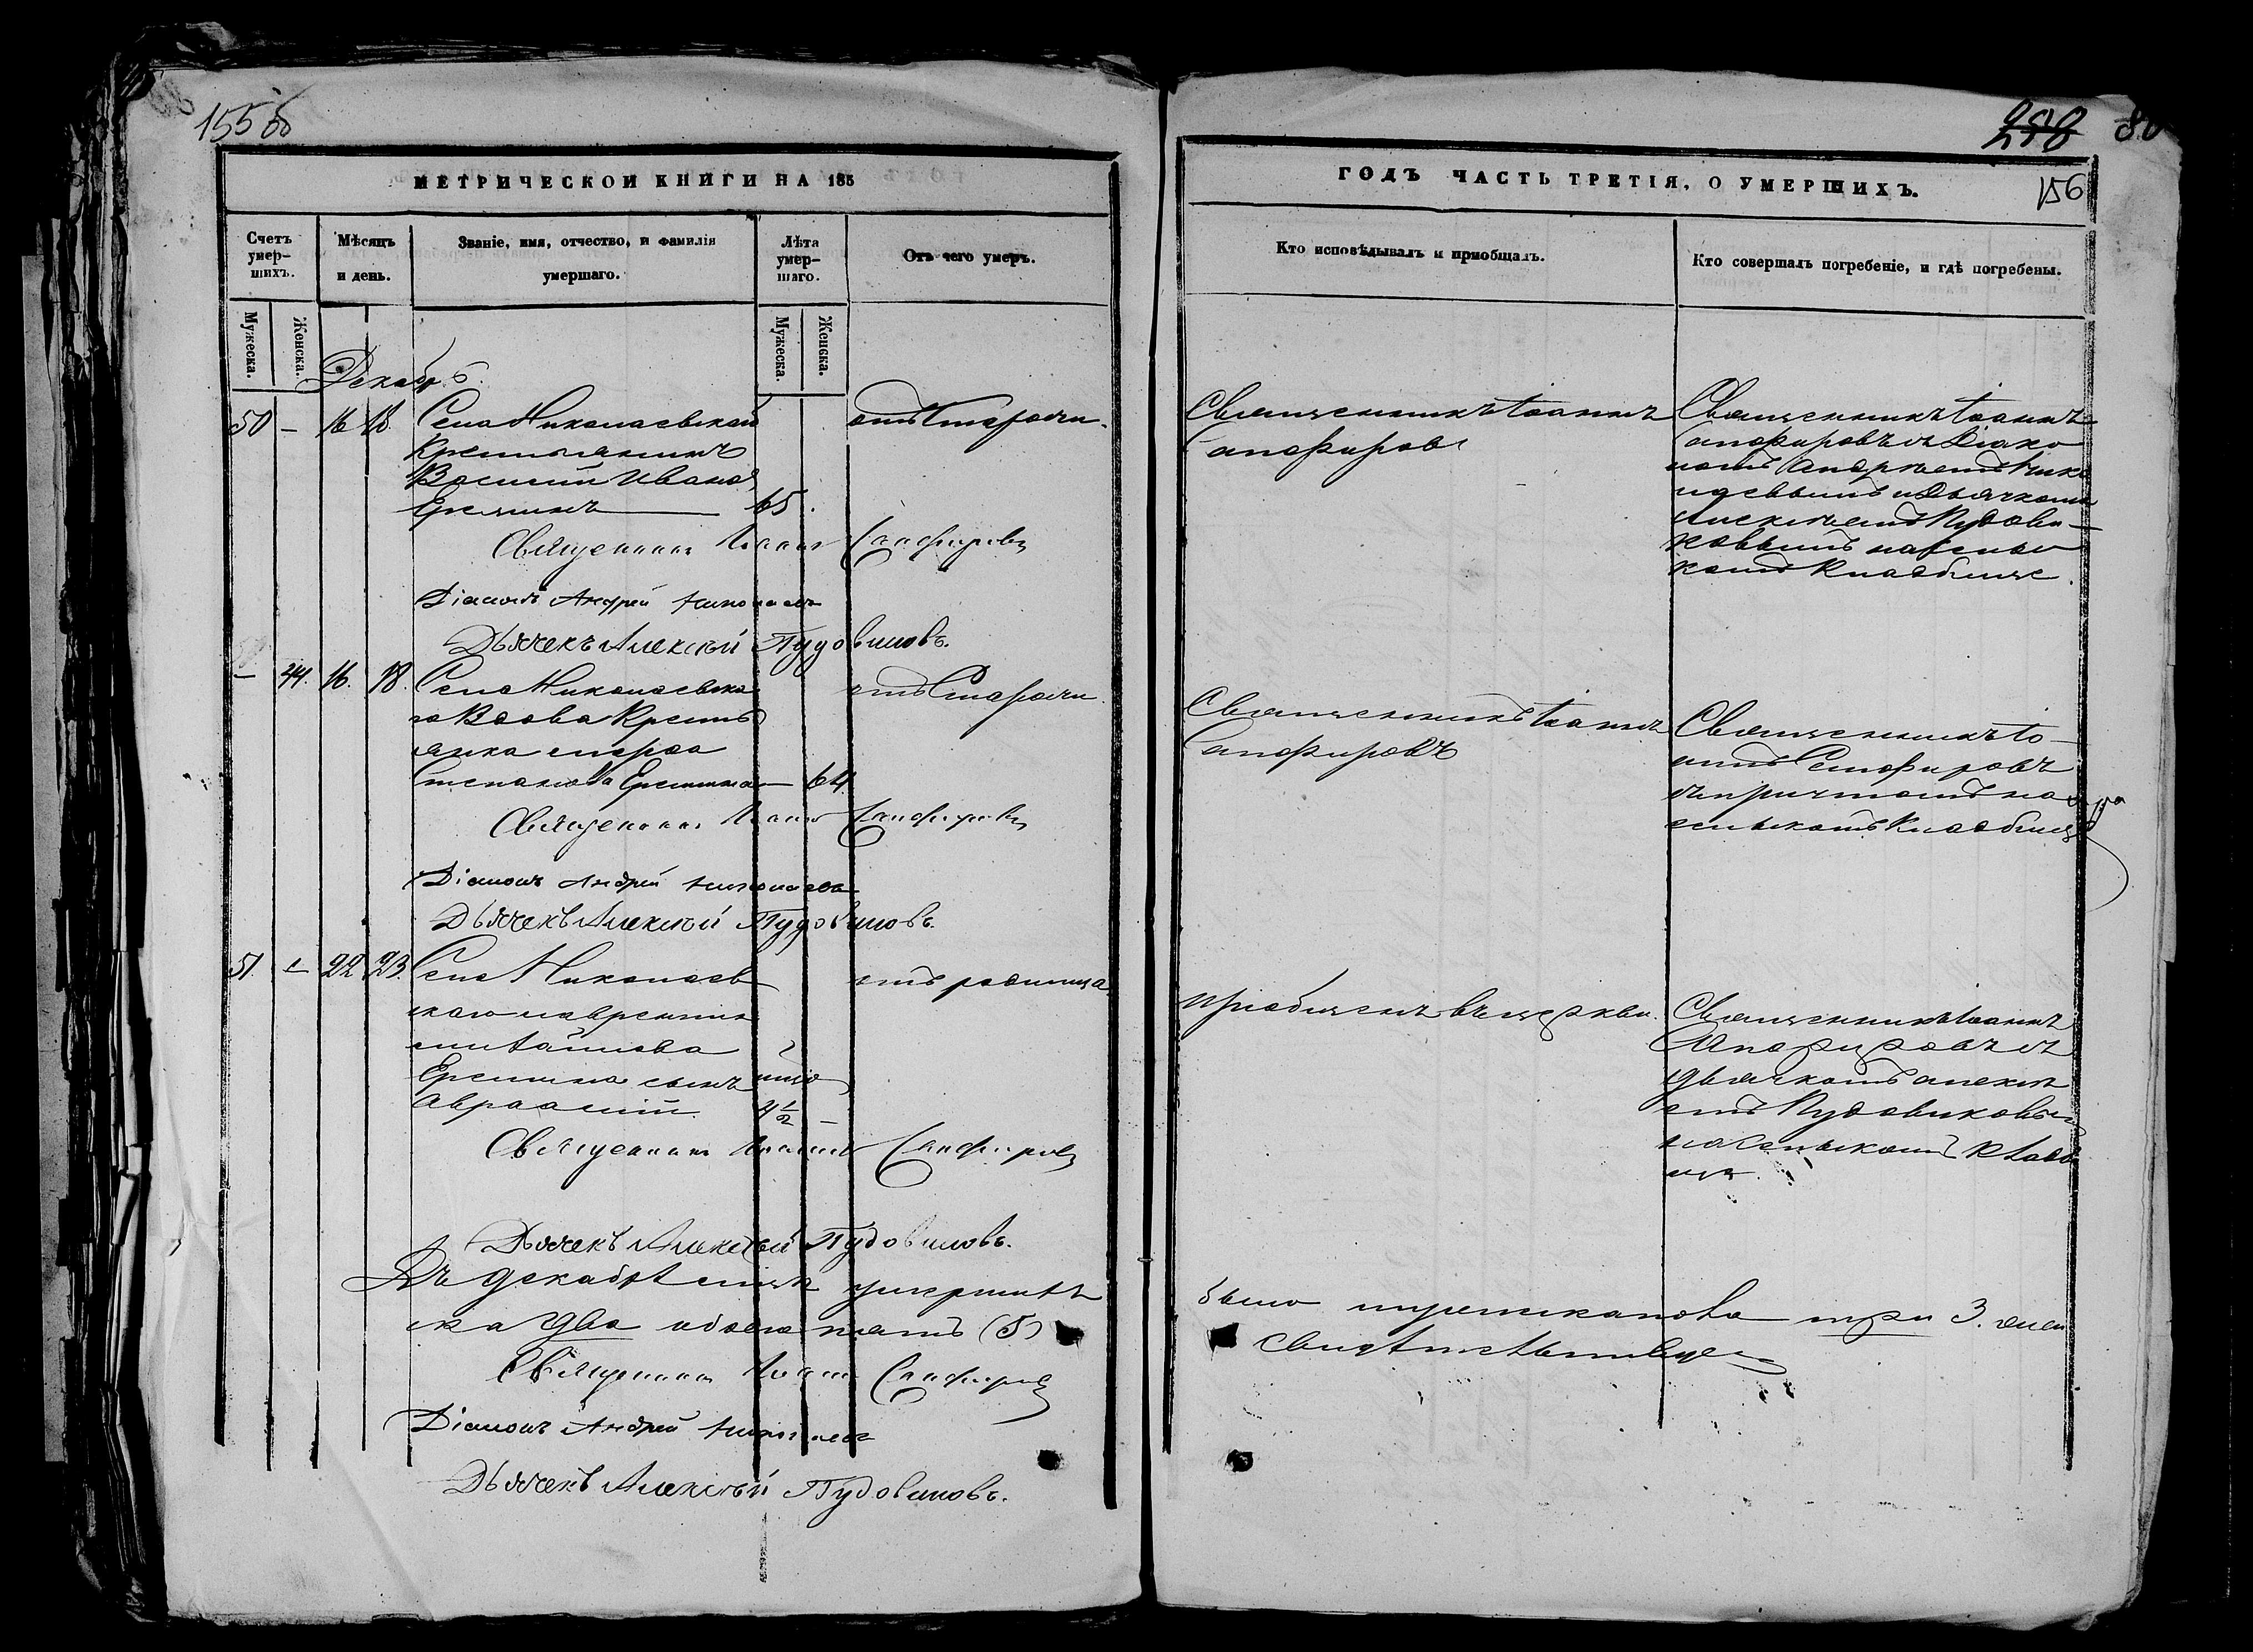 155 об
МЕТРИЧЕСКОЙ КНИГИ НА 185
Счетъ умер-шихъ.
Мѣсяцъ и день.
Званіе, имя, отчество, и фамилія умершаго.
Лѣта умер-шаго.
Отъ чего умеръ.
Мужеска.
Женска.
Мужеска.
Женска.
Декабрь.
50 — 16 18. Села Николаевскаго отъ Старости.
Крестьянинъ
Василій Иванов
Еремин 65.
Священникъ Іоаннъ Сапфировъ
Діаконъ Андрей Николаевъ
Дьячекъ Алексѣй Пудовиковъ.
— 44. 16. 18. Села Николаевска отъ Старости
го Вдова Кресть
янка
Степанова Еремина — 64.
Священникъ Іоаннъ Сапфировъ
Діаконъ Андрей Николаевъ
Дьячекъ Алексѣй Пудовиковъ.
51. — 22 23. Села Николаев отъ родимца
скаго Лаврентія
Еремина сынъ
Авраамій 4 1/2 —
Священникъ Іоаннъ Сапфировъ
Дьячекъ Алексѣй Пудовиковъ.
Въ декабрѣ умершихъ
два обоего (5)
Священникъ Іоаннъ Сапфировъ
Діаконъ Андрей Николаевъ
Дьячекъ Алексѣй Пудовиковъ.
288 80
ГОДЪ ЧАСТЬ ТРЕТІЯ, О УМЕРШИХЪ.
156
Кто исповѣдывалъ и пріобщалъ.
Кто совершалъ погребеніе, и гдѣ погребены.
Священникъ Іоаннъ
Сапфировъ
Священникъ Іоаннъ
Сапфировъ съ Діако
номъ Андреемъ Нико
лаевымъ и Дьячкомъ
Алексѣемъ Пудови-
ковымъ на сельс
комъ Кладбище.
Священникъ Іоаннъ
Сапфировъ
Священникъ Іо-
аннъ Сапфировъ
съ причтомъ на
сельскомъ Кладбище
пріобщенъ въ церкви.
Священникъ Іоаннъ
Сапфировъ съ
дьячкомъ Алексѣ
емъ Пудовиковымъ
на сельскомъ Кладби
ще.
было мужеска пола три 3.
свидѣтельствуемъ